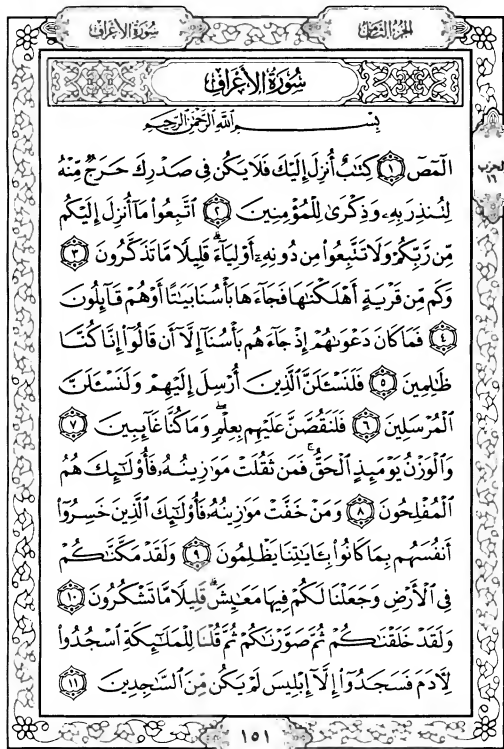 الجزء الثامن
سورة الأعراف
سُورَةُ الأَعْرَافِ
بِسْمِ اللَّهِ الرَّحْمَٰنِ الرَّحِيمِ
الحزب
١٦
الٓمٓصٓ ١ كِتَٰبٌ أُنزِلَ إِلَيْكَ فَلَا يَكُن فِى صَدْرِكَ حَرَجٌ مِّنْهُ
لِتُنذِرَ بِهِۦ وَذِكْرَىٰ لِلْمُؤْمِنِينَ ٢ ٱتَّبِعُوا۟ مَآ أُنزِلَ إِلَيْكُم
مِّن رَّبِّكُمْ وَلَا تَتَّبِعُوا۟ مِن دُونِهِۦٓ أَوْلِيَآءَ ۗ قَلِيلًا مَّا تَذَكَّرُونَ ٣
وَكَم مِّن قَرْيَةٍ أَهْلَكْنَٰهَا فَجَآءَهَا بَأْسُنَا بَيَٰتًا أَوْ هُمْ قَآئِلُونَ
٤ فَمَا كَانَ دَعْوَىٰهُمْ إِذْ جَآءَهُم بَأْسُنَآ إِلَّآ أَن قَالُوٓا۟ إِنَّا كُنَّا
ظَٰلِمِينَ ٥ فَلَنَسْـَٔلَنَّ ٱلَّذِينَ أُرْسِلَ إِلَيْهِمْ وَلَنَسْـَٔلَنَّ
ٱلْمُرْسَلِينَ ٦ فَلَنَقُصَّنَّ عَلَيْهِم بِعِلْمٍ ۖ وَمَا كُنَّا غَآئِبِينَ ٧
وَٱلْوَزْنُ يَوْمَئِذٍ ٱلْحَقُّ ۚ فَمَن ثَقُلَتْ مَوَٰزِينُهُۥ فَأُو۟لَٰٓئِكَ هُمُ
ٱلْمُفْلِحُونَ ٨ وَمَنْ خَفَّتْ مَوَٰزِينُهُۥ فَأُو۟لَٰٓئِكَ ٱلَّذِينَ خَسِرُوٓا۟
أَنفُسَهُم بِمَا كَانُوا۟ بِـَٔايَٰتِنَا يَظْلِمُونَ ٩ وَلَقَدْ مَكَّنَّٰكُمْ
فِى ٱلْأَرْضِ وَجَعَلْنَا لَكُمْ فِيهَا مَعَٰيِشَ ۗ قَلِيلًا مَّا تَشْكُرُونَ ١٠
وَلَقَدْ خَلَقْنَٰكُمْ ثُمَّ صَوَّرْنَٰكُمْ ثُمَّ قُلْنَا لِلْمَلَٰٓئِكَةِ ٱسْجُدُوا۟
لِءَادَمَ فَسَجَدُوٓا۟ إِلَّآ إِبْلِيسَ لَمْ يَكُن مِّنَ ٱلسَّٰجِدِينَ ١١
١٥١